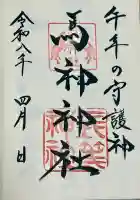 午年の守護神
馬神神社
令和八年 四月 日